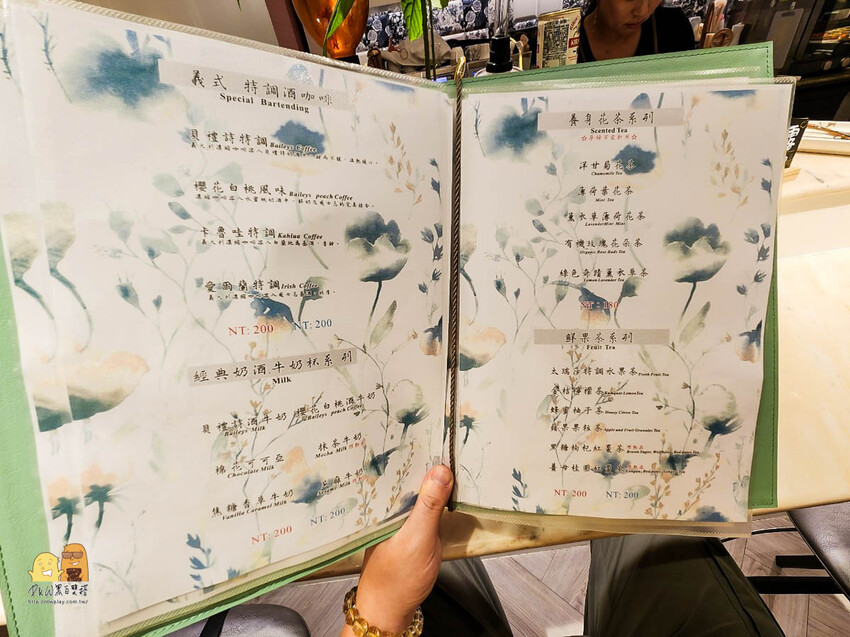 義式 特調酒咖啡
Special Bartending
貝禮詩特調 Baileys Coffee
櫻花白桃風味 Baileys peach Coffee
卡魯哇特調 Kahlua Coffee
愛爾蘭特調 Irish Coffee
NT: 200 NT: 200
經典奶酒.牛奶杯系列
Milk
貝禮詩酒牛奶 櫻花白桃酒牛奶
Baileys Milk Baileys peach Coffee
棉花可可亞 抹茶牛奶
Chocolate Milk Mocha Milk
焦糖香草牛奶 芝麻牛奶
Vanilla Caramel Milk
NT: 200 NT: 200
養身花茶系列
Scented Tea
洋甘菊花茶
Chamomile Tea
薄荷葉花茶
Mint Tea
薰衣草薄荷花茶
Lavender Mint
有機玫瑰花朵茶
Organic Rose Buds Tea
綠色奇蹟薰衣草茶
Lemon Lavender Tea
NT: 180
鮮果茶系列
Fruit Tea
太瑞莎特調水果茶 Fresh Fruit Tea
金桔檸檬茶 Kumquat Lemon Tea
蜂蜜柚子茶 Honey Citron Tea
蘋果果粒茶 Apple and Fruit Granules Tea
黑糖枸杞紅棗茶
薑母桂圓紅棗
NT: 200 NT: 200